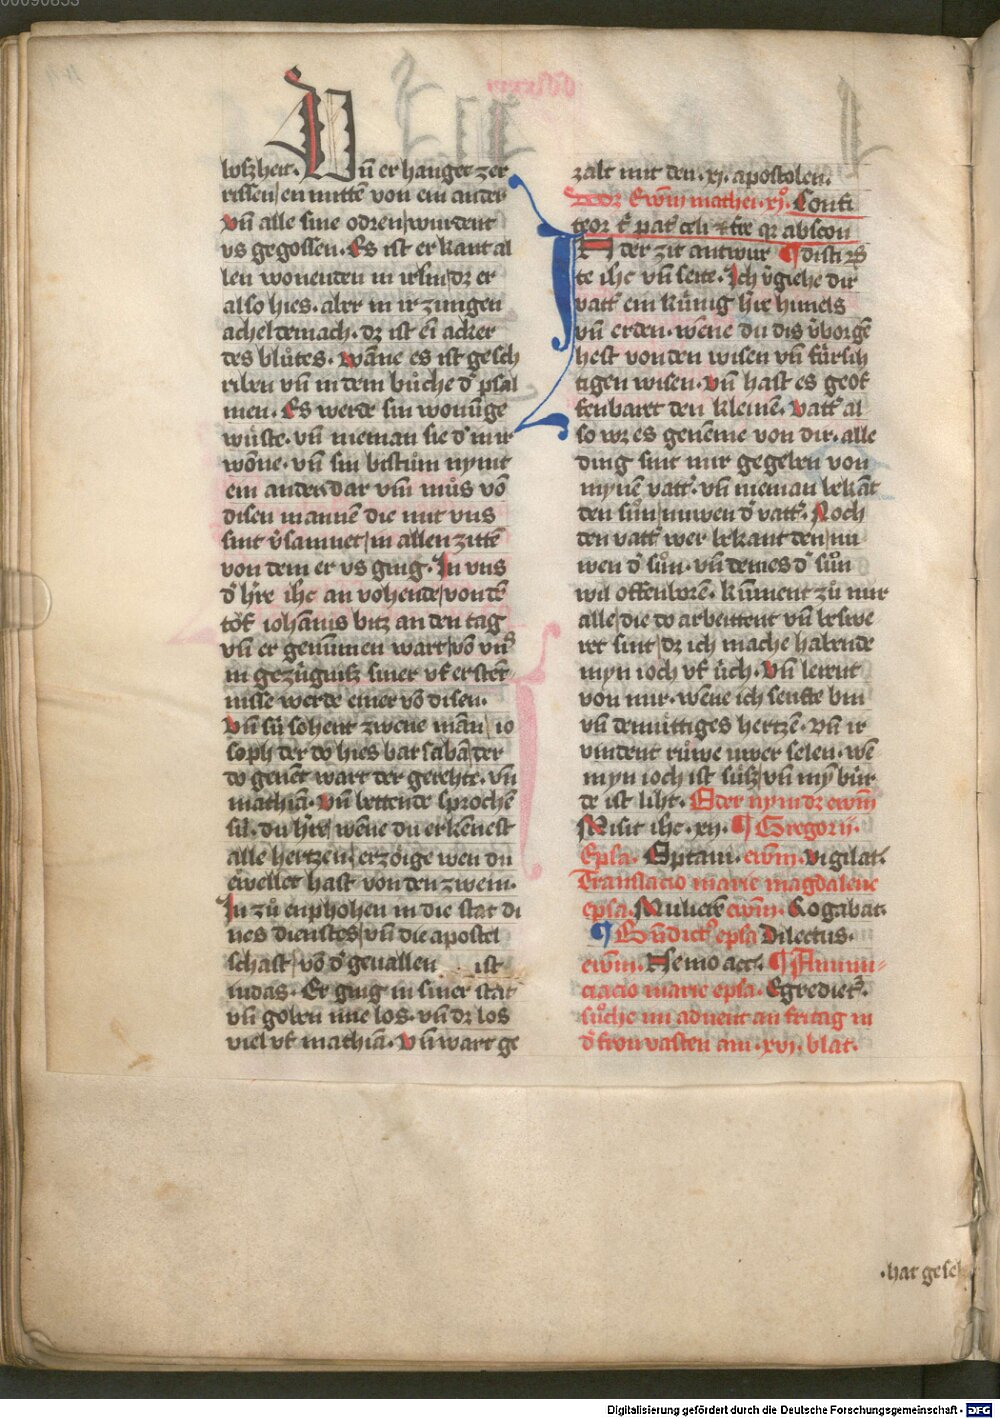 boſzheit. Vn̄ er hanget zer
riſſen/en mittē von ein ander
vn̄ alle ſine odren/wurdent
vs gegoſſen. Es iſt erkant al
len wonenden in irſlm̄/dz er
alſo hies. aber in ir zungen
acheldemach. dz iſt ein acker
des blůtes. wāne es iſt geſch
riben vn̄ in dem bůche d' pſal
men. Es werde ſin wonūge
wůſte. vn̄ nieman ſie d' in ir
wōne. vn̄ ſin biſtům nymt
ein ander/dar vm̄ můs vō
diſen mannē die mit vns
ſint v'ſamnet/in allen zittē
von dem er vs ging. In vns
d' h're ihc an vohende/von dē
tōf iohānis bitz an den tag
vn̄ er genūmen wart/vō vns
in gezúgniſz ſiner vf erſten
niſſe werde einer vō diſen.
Vn̄ ſú ſohent zwene man/io
ſeph der do hies barſabā/der
do genēt wart der gerehte. vn̄
mathiā. Vn̄ bettende ſprochē
ſú. du h're/wēne du erkeneſt
alle hertzen/erzōige wen du
erwellet haſt von den zwein.
In zů enphohen in die ſtat di
nes dienſtes/vn̄ die apoſtel
ſchaft/vō d' geuallen iſt
iudas. Er ging in ſiner ſtat
vn̄ goben ime los. vn̄ dz los
viel vf mathiā. Vn̄ wart ge
zalt mit den .xj. apoſtolen.
Dz Ewm̄ mathei .xj. Confi
teor t' pat' celi & t're q̄ abſcon
IN der zit antwur ¶ diſti
te ihc vn̄ ſeite. Ich v'giehe dir
vatt' ein kúnig h're himels
vn̄ erden. wēne du dis v'borgē
heſt von den wiſen vn̄ fúrſich
tigen wiſen. vn̄ haſt es geof
fenbaret den kleinē. vatt' al
ſo wz es genēme von dir. alle
ding ſint mir gegeben von
mynē vatt'. vn̄ nieman bekāt
den ſůn/nuwen d' vatt'. Noch
den vatt' wer bekant den/nu
wen d' ſůn. vn̄ dem es d' ſůn
wil offenborē. kūment zů mir
alle/die do arbeittent vn̄ beſwe
ret ſint/dz ich mache habende
myn ioch vf úch. Vn̄ lernt
von mir. wēne ich ſenfte bin
vn̄ demůttiges hertzē. Vn̄ ir
vindent růwe uwer ſelen. wē
myn ioch iſt ſůſz/vn̄ my bůr
de iſt liht. Oder nym dz ewm̄
Miſit ihc .xij. ¶ Gregorij.
Epla. Optaui. ewm̄. Vigilat.
Tranſlacio marie magdalene
epla. Mulierē ewm̄. Rogabat.
¶ Bn̄dict' epla Dilectus.
ewm̄. Nemo acc. ¶ Annun-
ciacio marie epla. Egrediet'.
ſůche im aduent an fritag in
d' fronvaſten am .xvj. blat.
.hat geſch
Digitalisierung gefördert durch die Deutsche Forschungsgemeinschaft - DFG